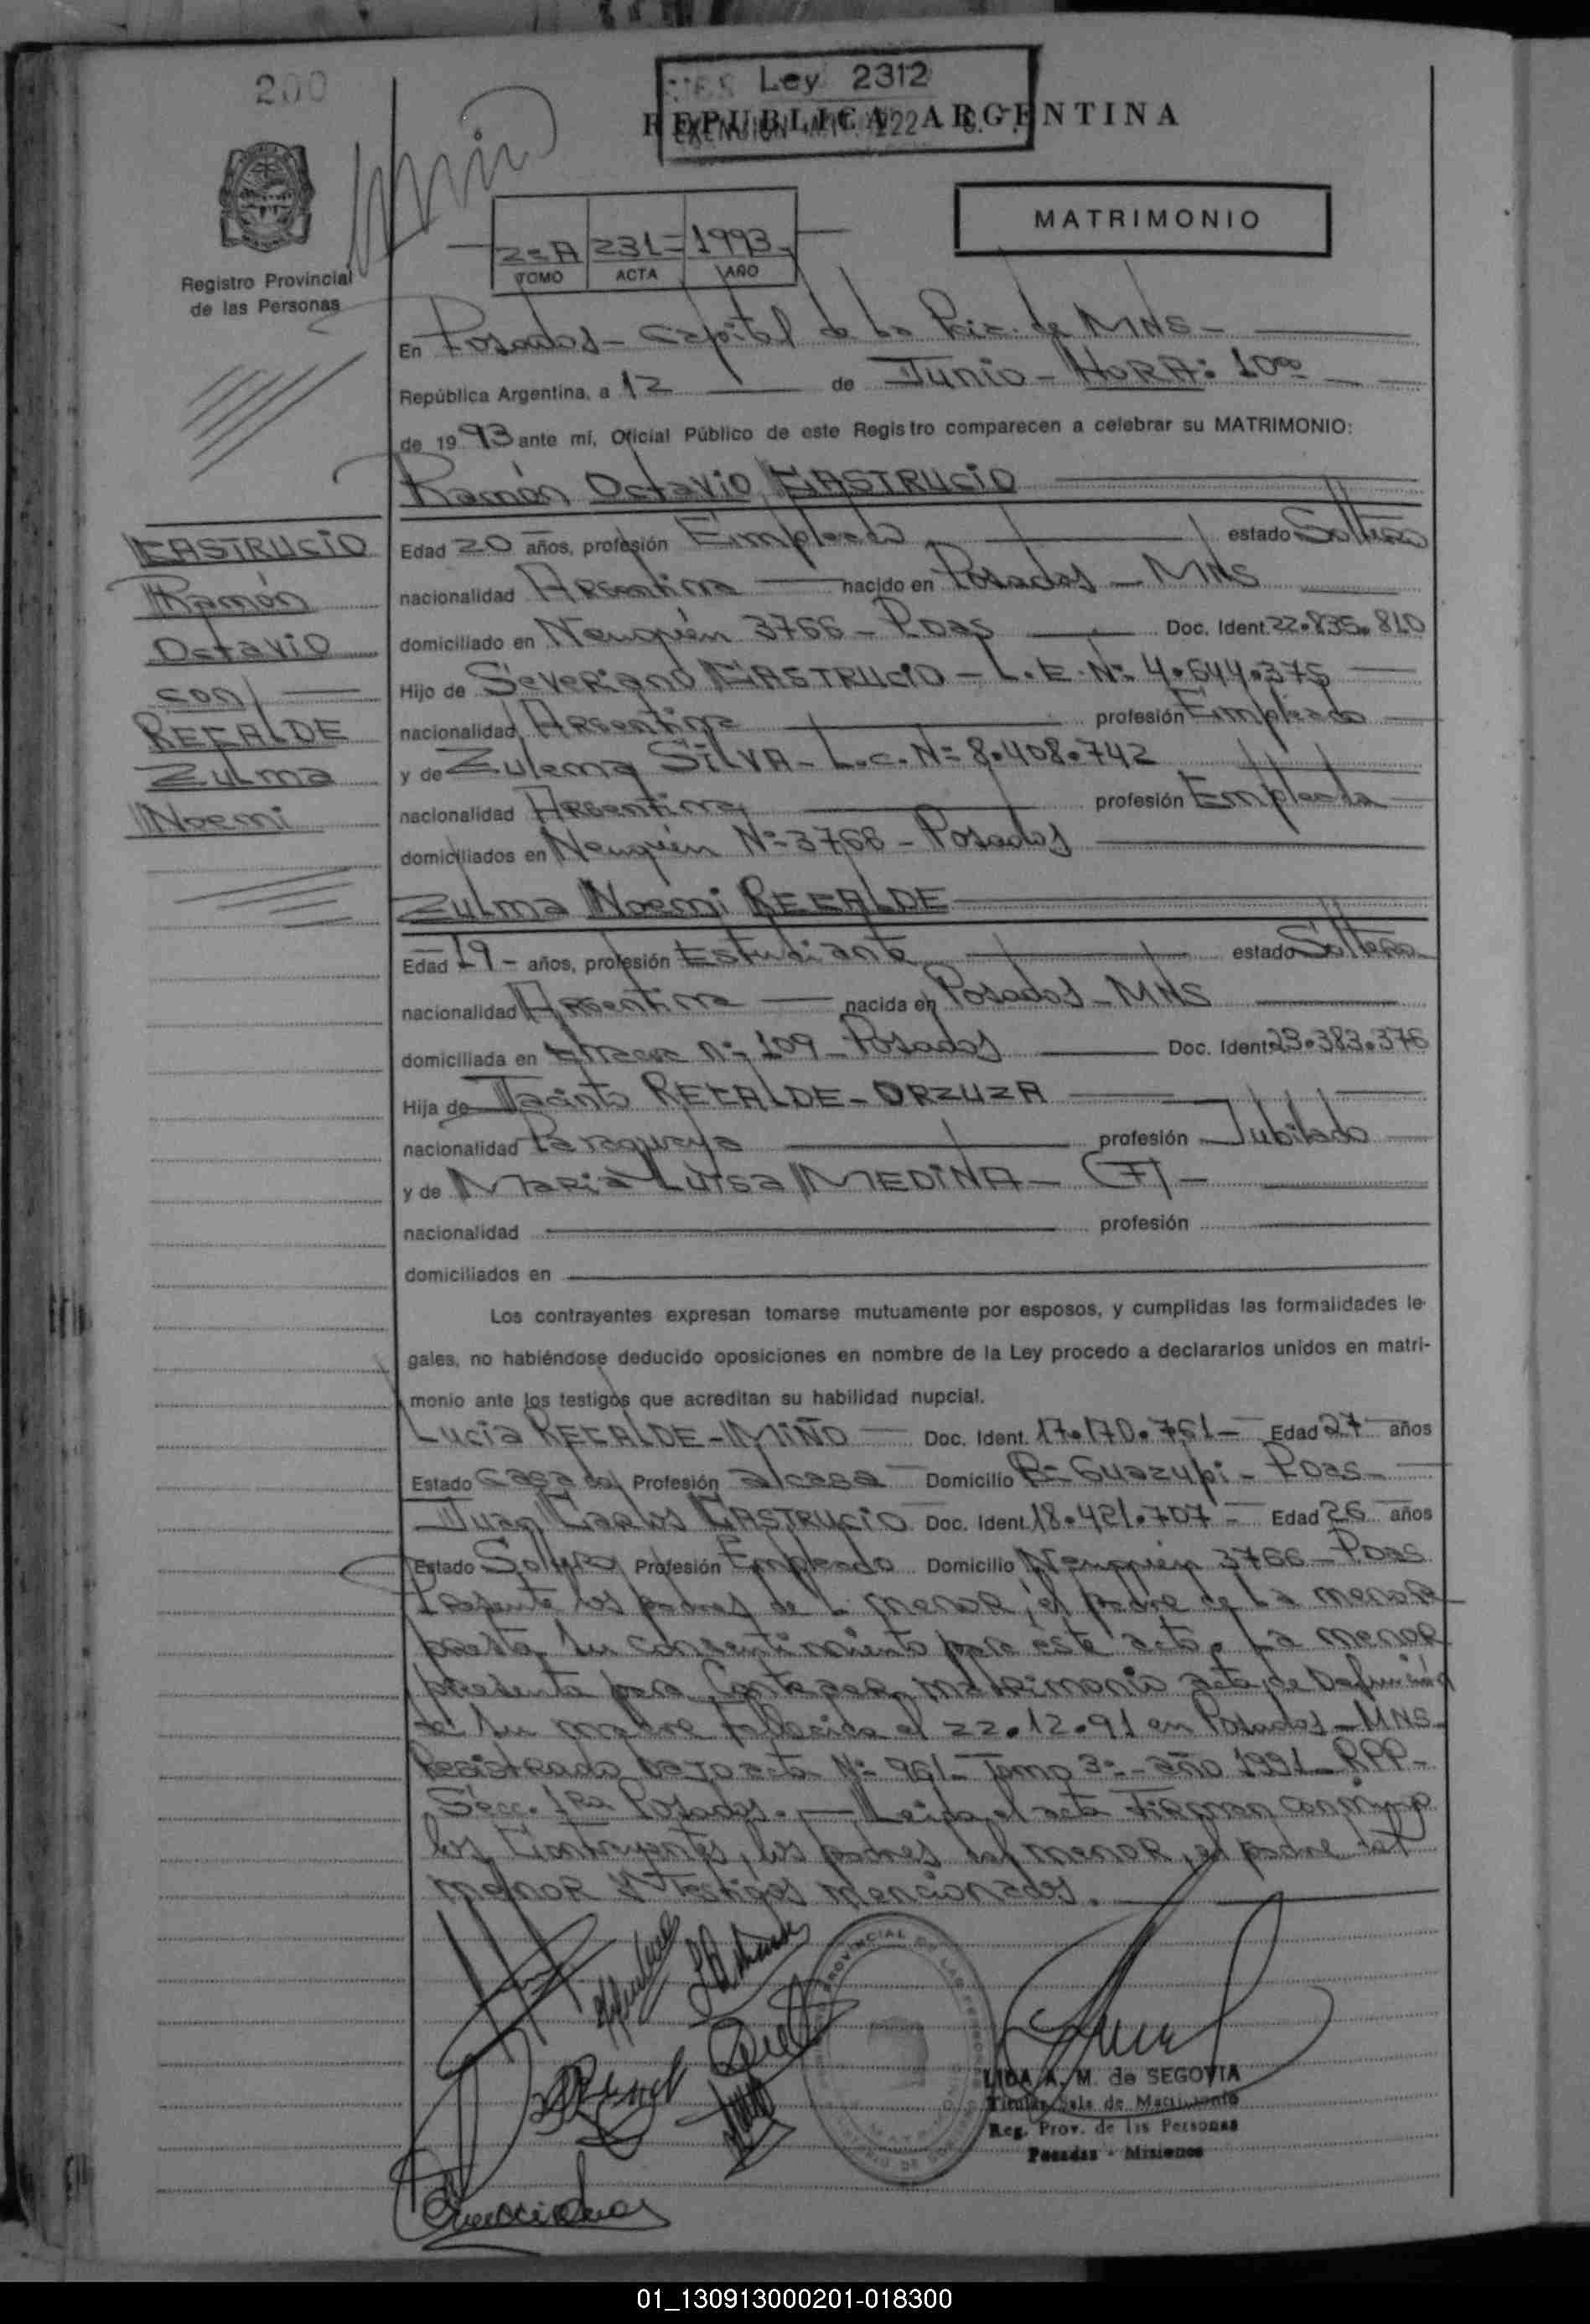 200
Ley 2312
REPUBLICA ARGENTINA
MATRIMONIO
2=A 231= 1993
TOMO ACTA AÑO
Registro Provincial
de las Personas
En Posadas - Capital de la Pcia. de MNS -
República Argentina, a 12 de Junio - HORA: 10
de 1993 ante mí, Oficial Público de este Registro comparecen a celebrar su MATRIMONIO:
Ramón Octavio CASTRUCIO
CASTRUCIO
Ramón
Octavio
con
RECALDE
Zulma
Noemi
Edad 20 años, profesión Empleado estado Soltero
nacionalidad Argentina nacido en Posadas - MNS
domiciliado en Neuquén 3766 - Pdas Doc. Ident. 22.835.810
Hijo de Severiano CASTRUCIO - L.E. Nº 4.644.375
nacionalidad Argentina profesión Empleado
y de Zulema SILVA - L.C. Nº 8.408.742
nacionalidad Argentina profesión Empleada
domiciliados en Neuquén Nº 3768 - Posadas
Zulma Noemi RECALDE
Edad 19 - años, profesión Estudiante estado Soltera
nacionalidad Argentina nacida en Posadas - MNS
domiciliada en Nº 109 - Posadas Doc. Ident. 23.383.376
Hija de Jacinto RECALDE - ORZUZA
nacionalidad Paraguaya profesión Jubilado
y de Maria Luisa MEDINA - (F) -
nacionalidad profesión
domiciliados en
Los contrayentes expresan tomarse mutuamente por esposos, y cumplidas las formalidades le-
gales, no habiéndose deducido oposiciones en nombre de la Ley procedo a declararlos unidos en matri-
monio ante los testigos que acreditan su habilidad nupcial.
Lucia RECALDE - MIÑO Doc. Ident. 17.170.761 - Edad 27 años
Estado Casada Profesión a/casa Domicilio Bº Guazupi - Pdas -
Juan Carlos CASTRUCIO Doc. Ident. 18.421.707 - Edad 26 años
Estado Soltero Profesión Empleado Domicilio Neuquén 3766 - Pdas
Presente los padres de menor, el padre de la menor
presta su consentimiento para éste acto. La menor
presenta para Contraer matrimonio acta de Defunción
de su madre fallecida el 22.12.91 en Posadas - MNS
Registrado bajo acta Nº 961 - Tomo 3º - año 1991 - RPP -
Secc. 1ra Posadas. - Leída el acta Firman conmigo
los Contrayentes, los padres del menor, el padre del
menor y testigos mencionados.
LIDA A. M. de SEGOVIA
Titular Sala de Matrimonio
Reg. Prov. de las Personas
Posadas - Misiones
01_130913000201-018300